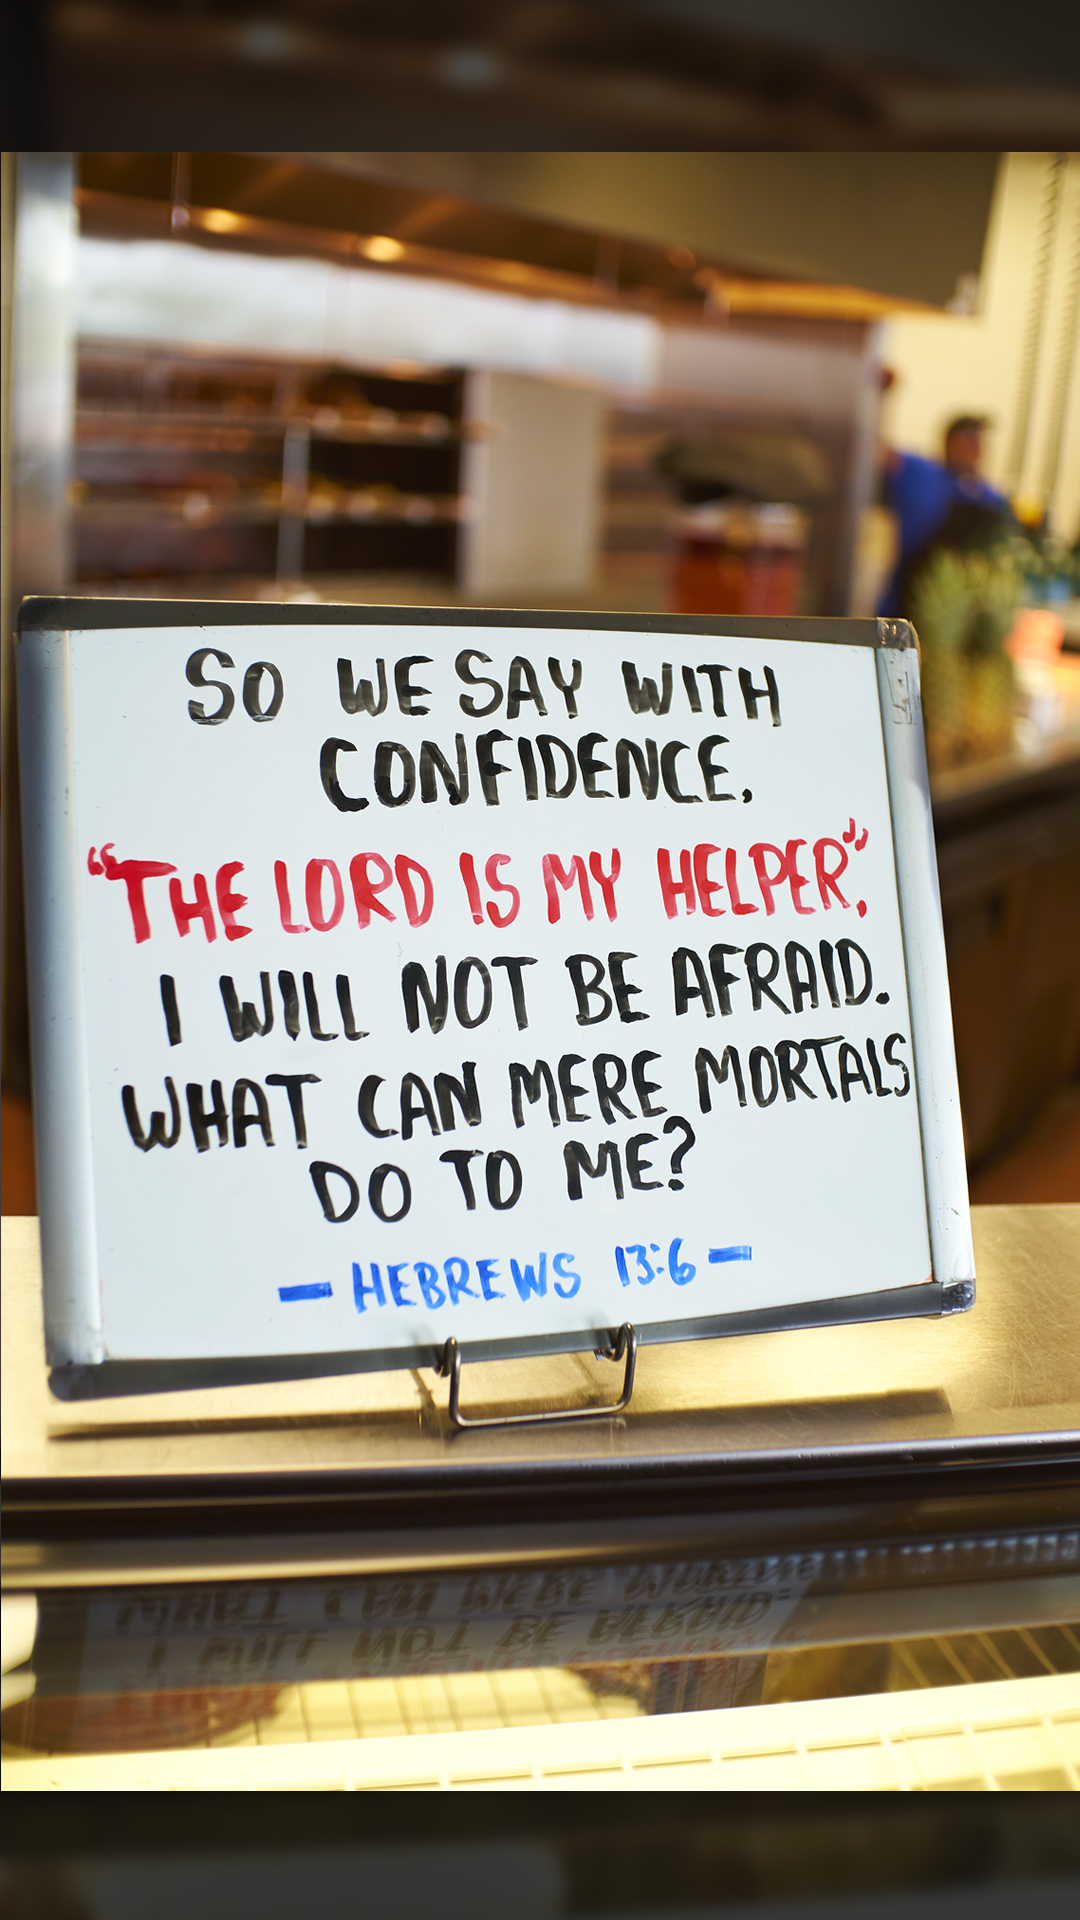 SO WE SAY WITH
CONFIDENCE,
"THE LORD IS MY HELPER";
I WILL NOT BE AFRAID.
WHAT CAN MERE MORTALS
DO TO ME?
— HEBREWS 13:6 —